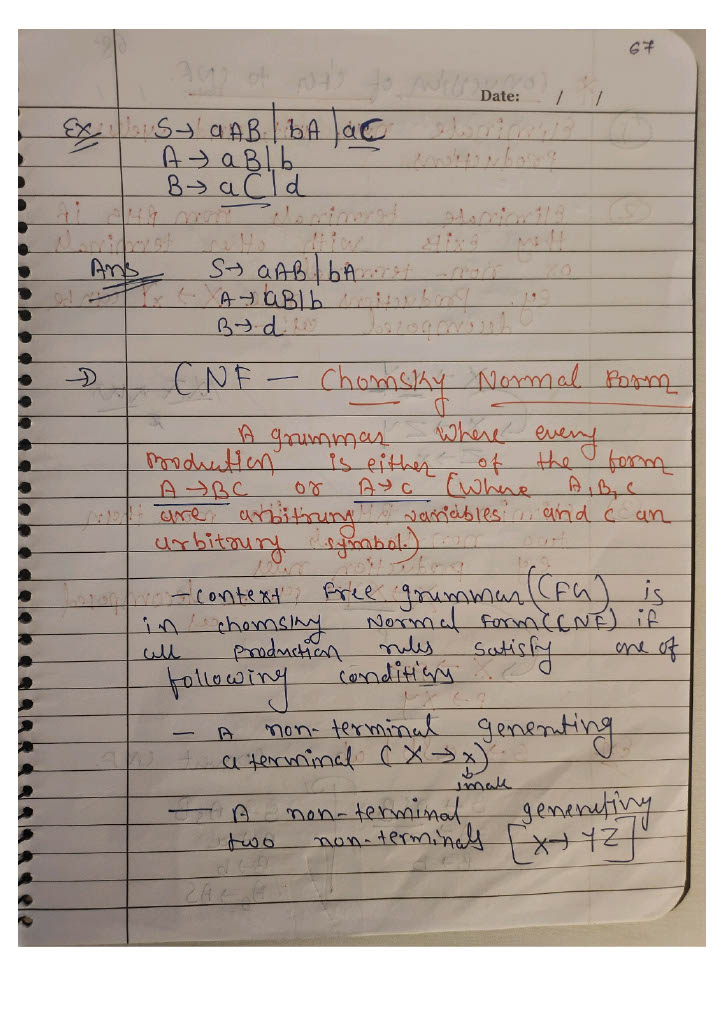 67
Date: / /
Ex S → aAB | bA | aC
A → aB | b
B → aC | d
Ans S → aAB | bA
A → aB | b
B → d
→ CNF — Chomsky Normal Form
A grammar where every
production is either of the form
A → BC or A → c (where A, B, C
are arbitrary variables and c an
arbitrary symbol.)
- context free grammar (CFG) is
in chomsky Normal Form (CNF) if
all production rules satisfy one of
following conditions
— A non-terminal generating
a terminal (X → x)
small
— A non-terminal generating
two non-terminals [X → YZ]